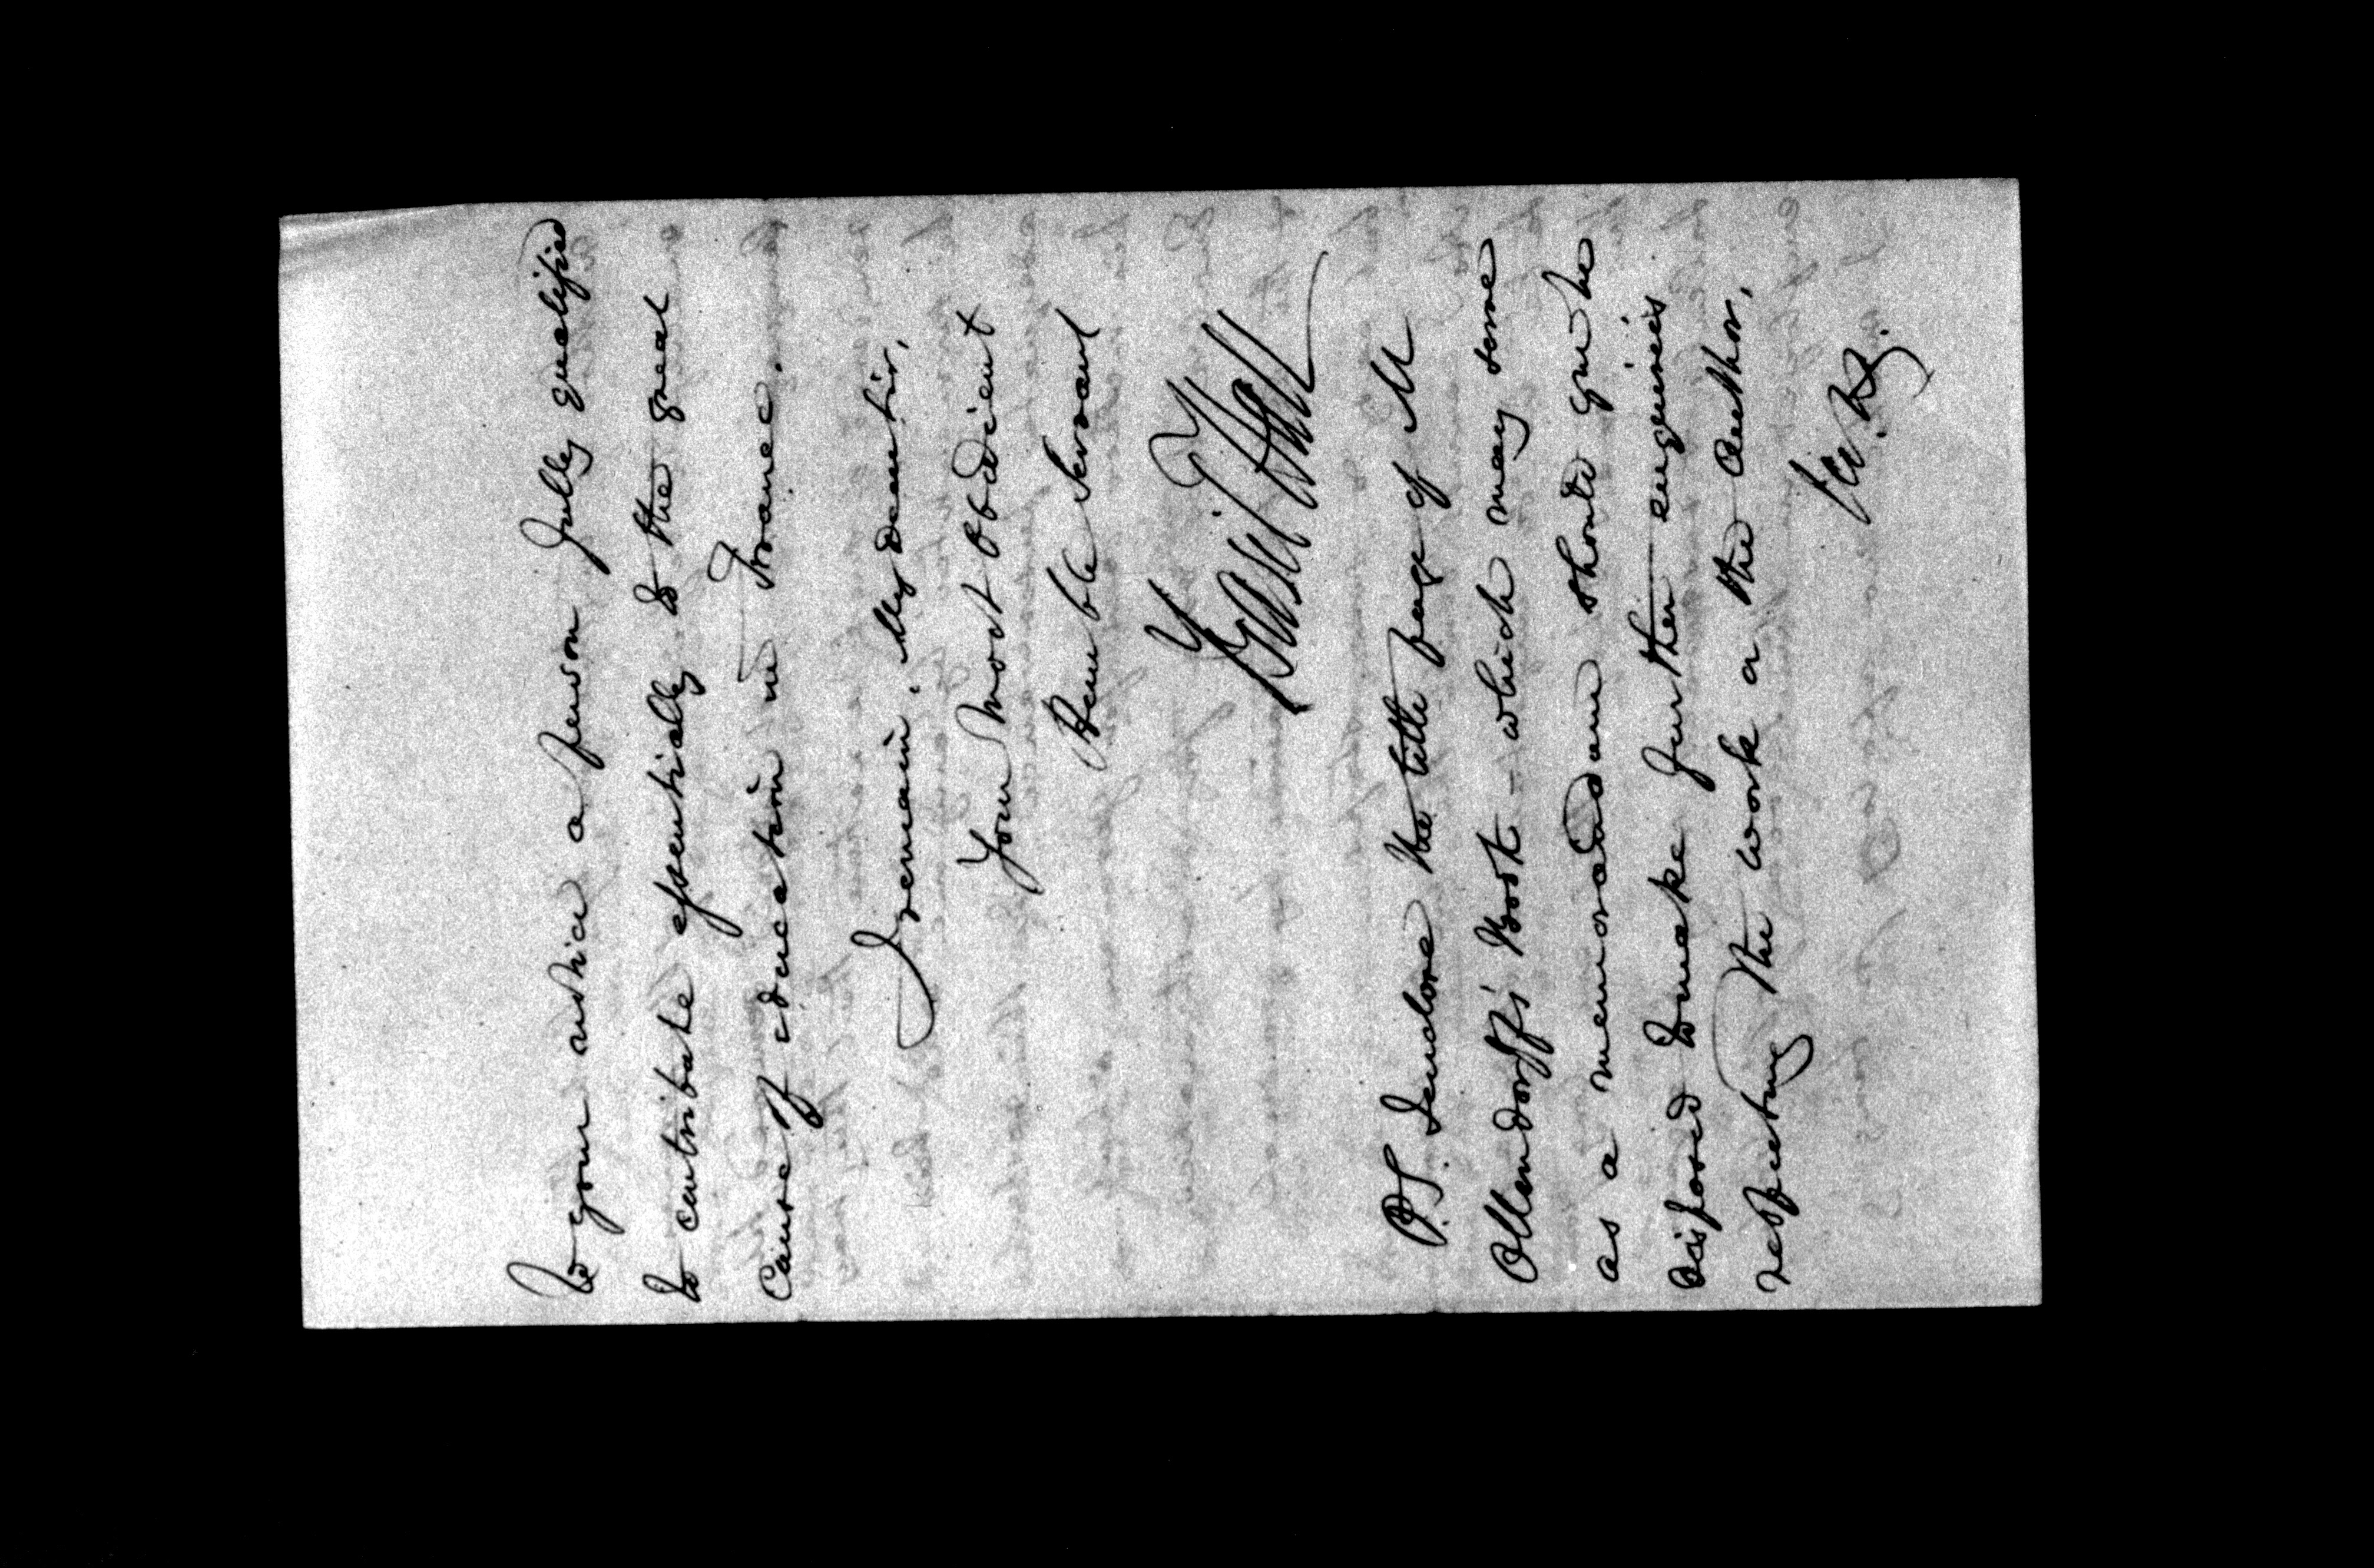 to your notice a person fully qualified
to contribute essentially to the great
cause of education in France.
I remain, My dear Sir,
Your most obedient
Humble Servant
Basil Hall
P.S. I enclose the title page of M
Ollendorff's Book - which may serve
as a memorandum should you be
disposed to make further enquiries
respecting the work or the author,